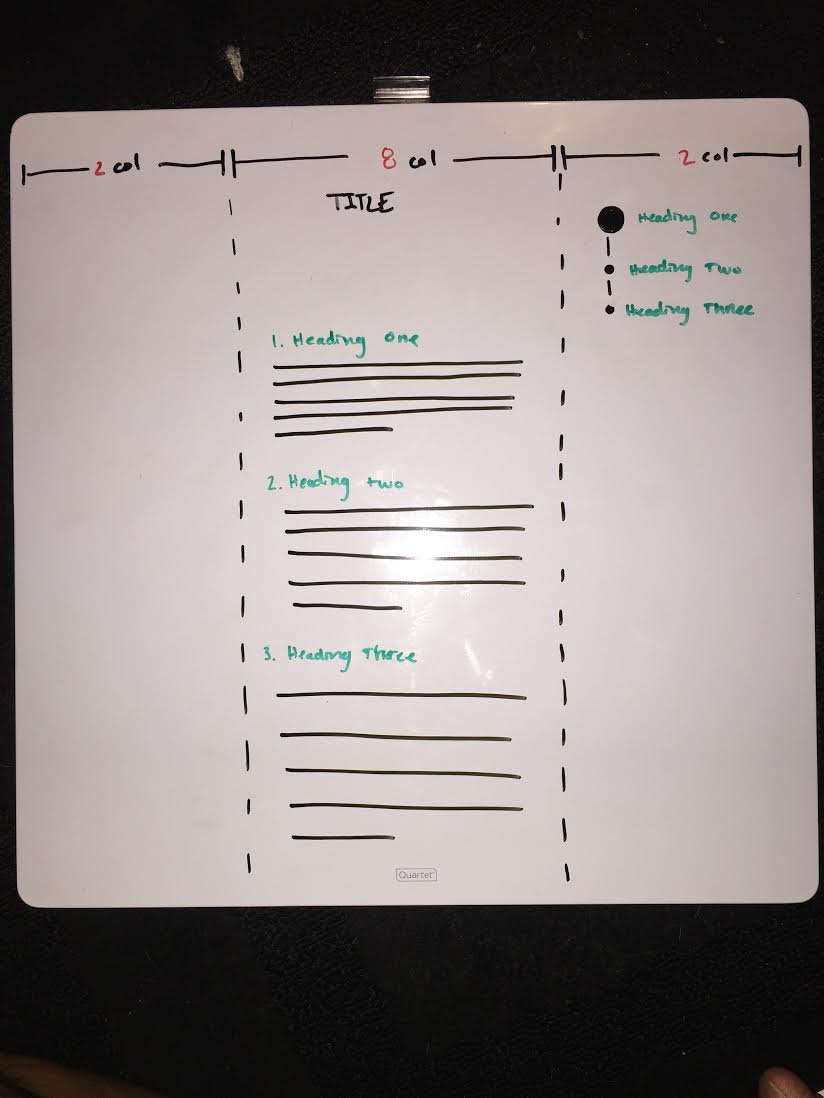 2 col
8 col
2 col
TITLE
Heading One
Heading Two
Heading Three
1. Heading One
2. Heading two
3. Heading Three
Quartet